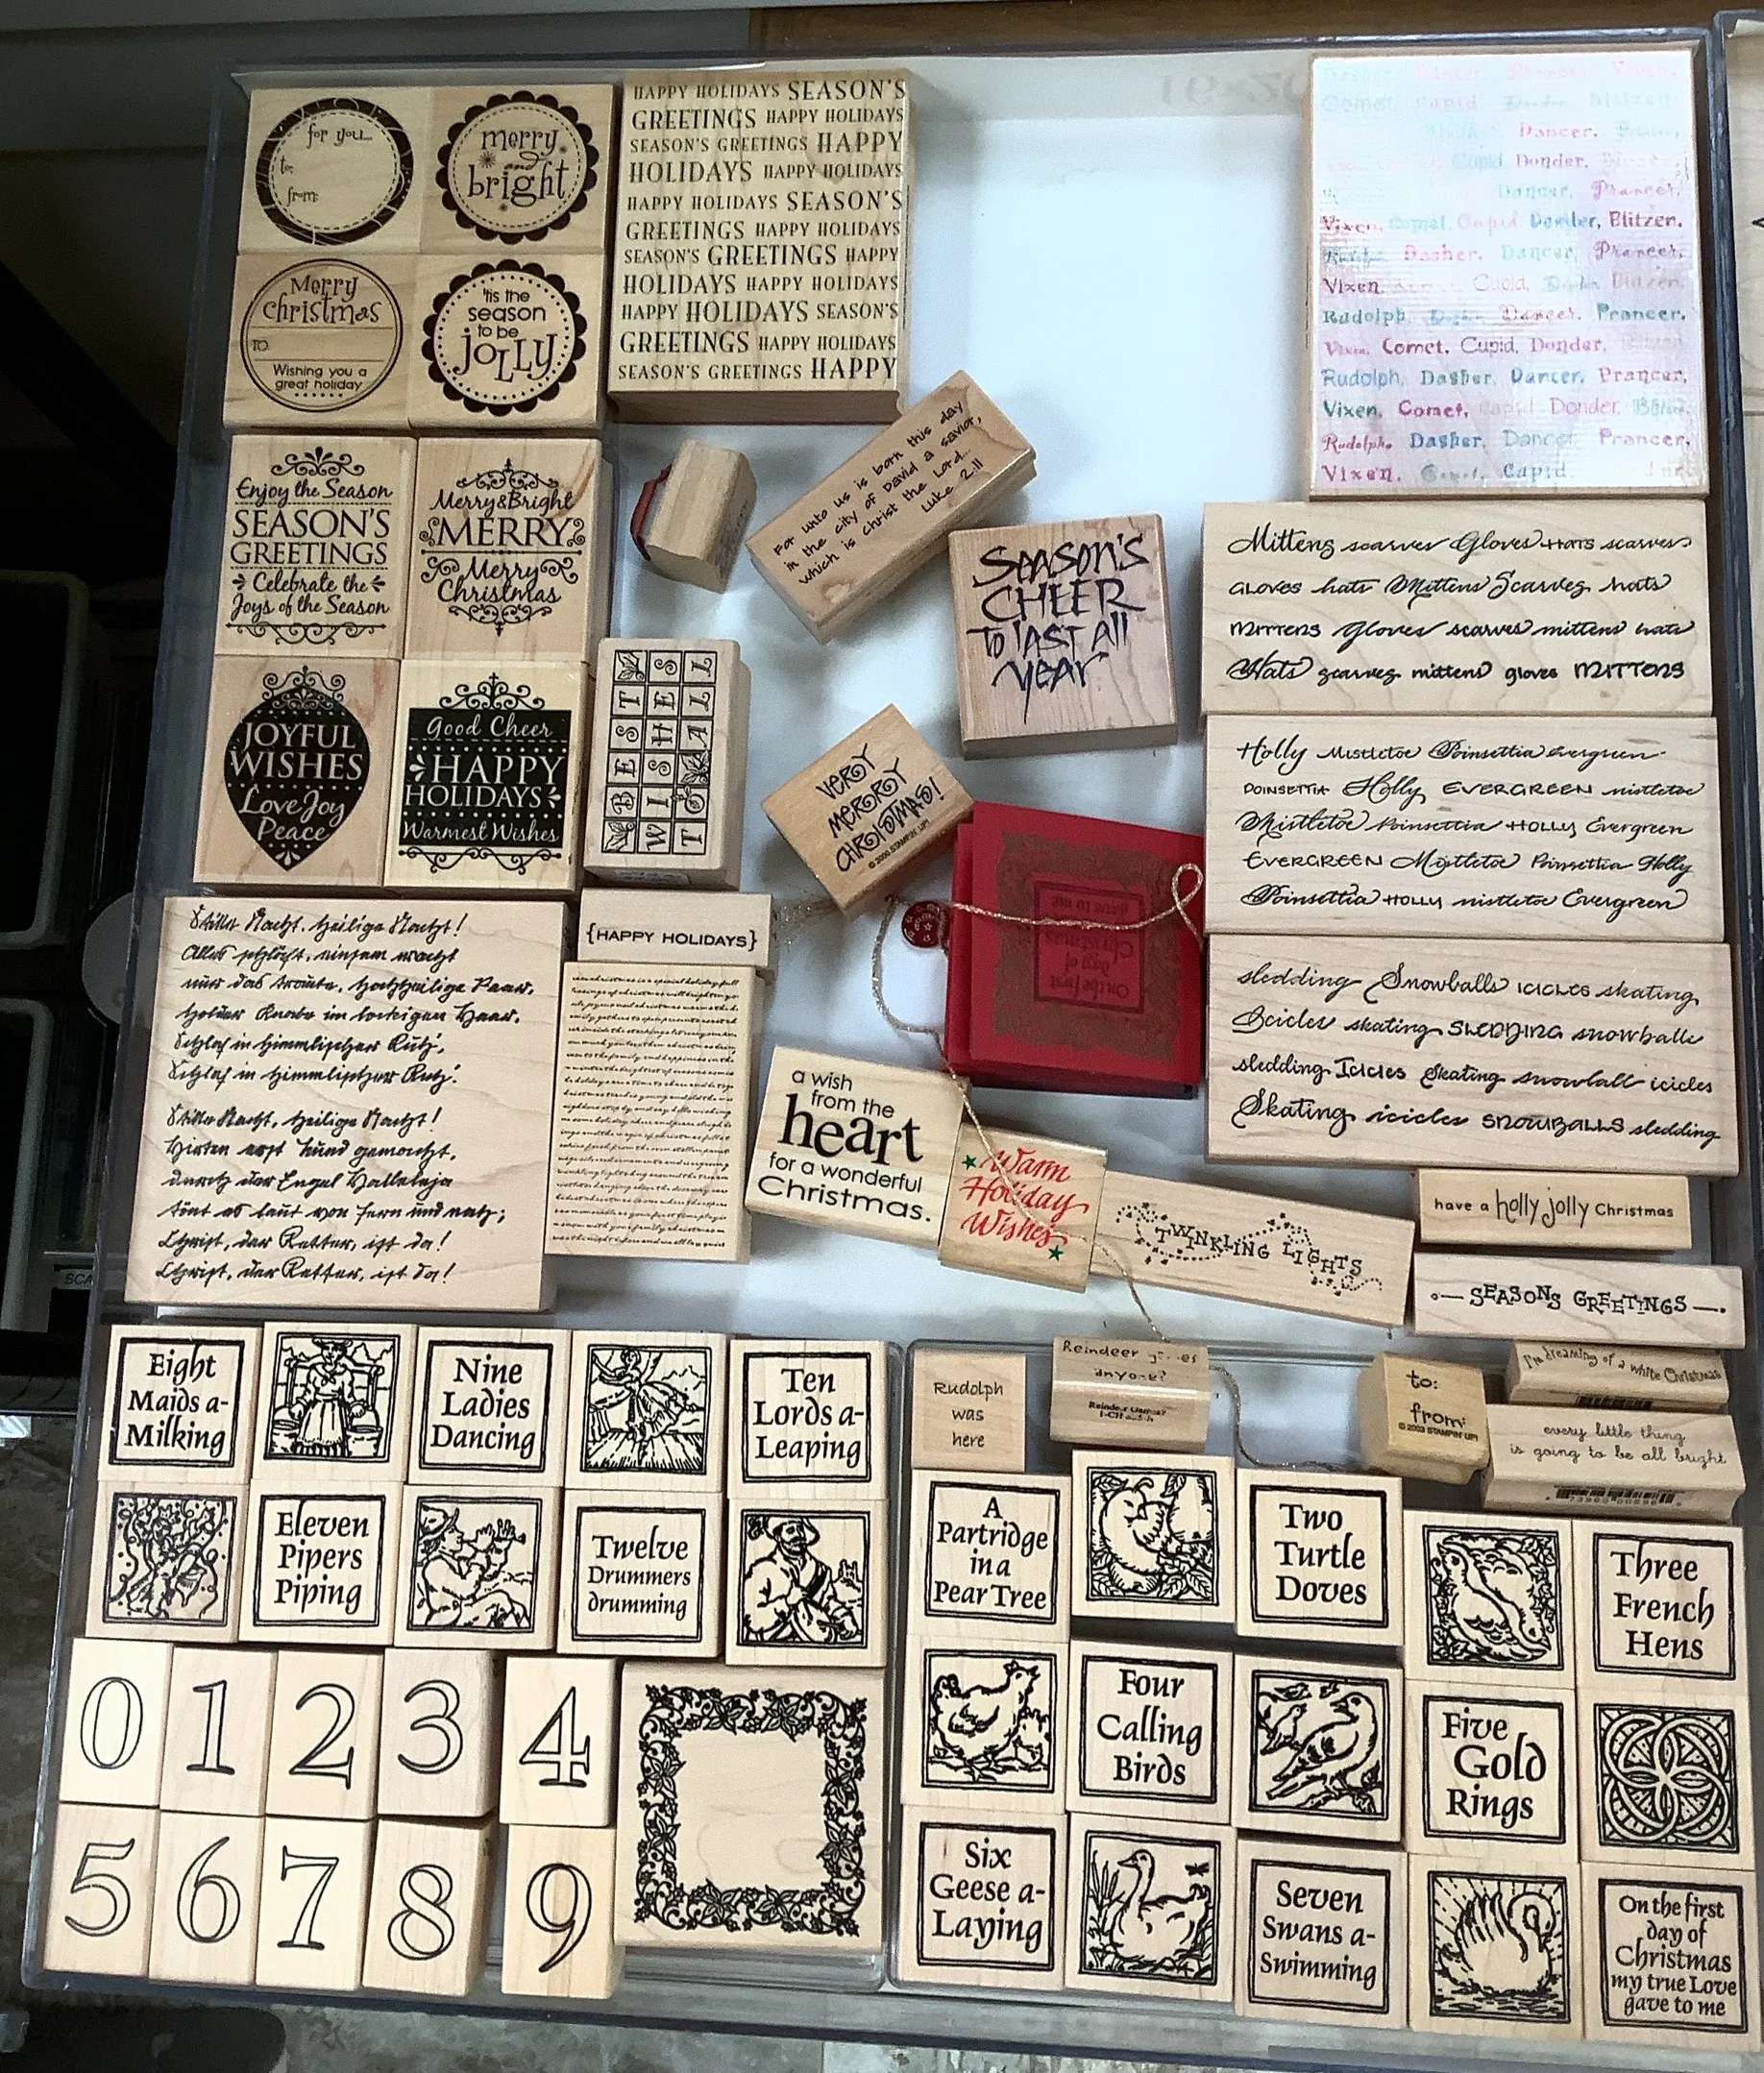 for you...
to:
from:
merry
and
bright
Merry
christmas
TO
Wishing you a
great holiday
'tis the
season
to be
JOLLY
HAPPY HOLIDAYS SEASON'S
GREETINGS HAPPY HOLIDAYS
SEASON'S GREETINGS HAPPY
HOLIDAYS HAPPY HOLIDAYS
HAPPY HOLIDAYS SEASON'S
GREETINGS HAPPY HOLIDAYS
SEASON'S GREETINGS HAPPY
HOLIDAYS HAPPY HOLIDAYS
HAPPY HOLIDAYS SEASON'S
GREETINGS HAPPY HOLIDAYS
SEASON'S GREETINGS HAPPY
Dasher, Dancer, Prancer, Vixen,
Comet, Cupid, Donder, Blitzen
Dancer,
Cupid, Donder,
Dancer, Prancer,
Vixen, Comet, Cupid, Donder, Blitzen,
Dasher, Dancer, Prancer,
Vixen, Cupid, Blitzen,
Rudolph, Dancer, Prancer,
Vixen, Comet, Cupid, Donder,
Rudolph, Dasher, Dancer, Prancer,
Vixen, Comet, Cupid, Donder,
Rudolph, Dasher, Dancer, Prancer,
Vixen, Comet, Cupid,
Enjoy the Season
SEASON'S
GREETINGS
Celebrate the
Joys of the Season
Merry & Bright
MERRY
Merry
Christmas
JOYFUL
WISHES
Love Joy
Peace
Good Cheer
HAPPY
HOLIDAYS
Warmest Wishes
BEST
WISHES
TO ALL
For unto us is born this day
in the city of David a savior,
which is Christ the Lord...
Luke 2:11
SEASON'S
CHEER
TO LAST All
year
VERY
MERRY
CHRISTMAS!
© 2000 STAMPIN' UP!
On the first
day of
Christmas
gave to me
Mittens scarves Gloves HATS scarves
GLOVES hats Mittens Scarves hats
MITTENS Gloves scarves mittens hats
Hats scarves mittens gloves MITTENS
Holly Mistletoe Poinsettia Evergreen
POINSETTIA Holly EVERGREEN mistletoe
Mistletoe Poinsettia HOLLY Evergreen
EVERGREEN Mistletoe Poinsettia Holly
Poinsettia HOLLY mistletoe Evergreen
sledding Snowballs ICICLES skating
Icicles skating SLEDDING snowballs
sledding Icicles Skating snowball icicles
Skating icicles SNOWBALLS sledding
Stille Nacht, heilige Nacht!
Alles schläft, einsam wacht
nur das traute, hochheilige Paar.
Holder Knabe im lockigen Haar,
Schlaf in himmlischer Ruh',
Schlaf in himmlischer Ruh'.
Stille Nacht, heilige Nacht!
Hirten erst kund gemacht,
durch der Engel Halleluja
tönt es laut von fern und nah;
Christ, der Retter, ist da!
Christ, der Retter, ist da!
{HAPPY HOLIDAYS}
a wish
from the
heart
for a wonderful
Christmas.
Warm
Holiday
Wishes
TWINKLING LIGHTS
have a holly jolly Christmas
SEASONS GREETINGS
Eight
Maids a-
Milking
Nine
Ladies
Dancing
Ten
Lords a-
Leaping
Eleven
Pipers
Piping
Twelve
Drummers
drumming
0 1 2 3 4
5 6 7 8 9
Rudolph
was
here
Reindeer
anyone?
to:
from:
© 2003 STAMPIN' UP!
I'm dreaming of a white Christmas
every little thing
is going to be all bright
A
Partridge
in a
Pear Tree
Two
Turtle
Doves
Three
French
Hens
Four
Calling
Birds
Five
Gold
Rings
Six
Geese a-
Laying
Seven
Swans a-
Swimming
On the first
day of
Christmas
my true Love
gave to me